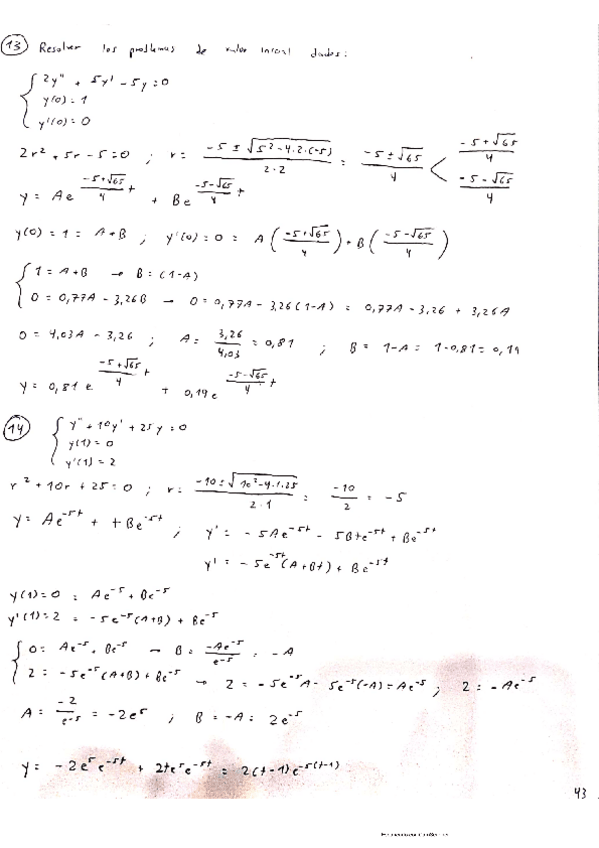 13 Resolver los problemas de valor inicial dados:
2y" + 5y' - 5y = 0
y(0) = 1
y'(0) = 0
2r² + 5r - 5 = 0 ; r = (-5 ± √(5² - 4·2·(-5)))/(2·2) = (-5 ± √65)/4 < (-5 + √65)/4 , (-5 - √65)/4
y = A e^((-5+√65)/4 t) + B e^((-5-√65)/4 t)
y(0) = 1 = A + B ; y'(0) = 0 = A((-5+√65)/4) + B((-5-√65)/4)
1 = A + B → B = (1-A)
0 = 0,77A - 3,26B → 0 = 0,77A - 3,26(1-A) = 0,77A - 3,26 + 3,26A
0 = 4,03A - 3,26 ; A = 3,26/4,03 = 0,81 ; B = 1-A = 1-0,81 = 0,19
y = 0,81 e^((-5+√65)/4 t) + 0,19 e^((-5-√65)/4 t)
14 y" + 10y' + 25y = 0
y(1) = 0
y'(1) = 2
r² + 10r + 25 = 0 ; r = (-10 ± √(10² - 4·1·25))/(2·1) = -10/2 = -5
y = Ae^(-5t) + tBe^(-5t) ; y' = -5Ae^(-5t) - 5Bte^(-5t) + Be^(-5t)
y' = -5e^(-5t)(A+Bt) + Be^(-5t)
y(1) = 0 = Ae^(-5) + Be^(-5)
y'(1) = 2 = -5e^(-5)(A+B) + Be^(-5)
0 = Ae^(-5) + Be^(-5) → B = -Ae^(-5)/e^(-5) = -A
2 = -5e^(-5)(A+B) + Be^(-5) → 2 = -5e^(-5)A - 5e^(-5)(-A) = Ae^(-5) ; 2 = -Ae^(-5)
A = -2/e^(-5) = -2e^5 ; B = -A = 2e^(-5)
y = -2e^5e^(-5t) + 2te^5e^(-5t) = 2(t-1)e^(-5(t-1))
43